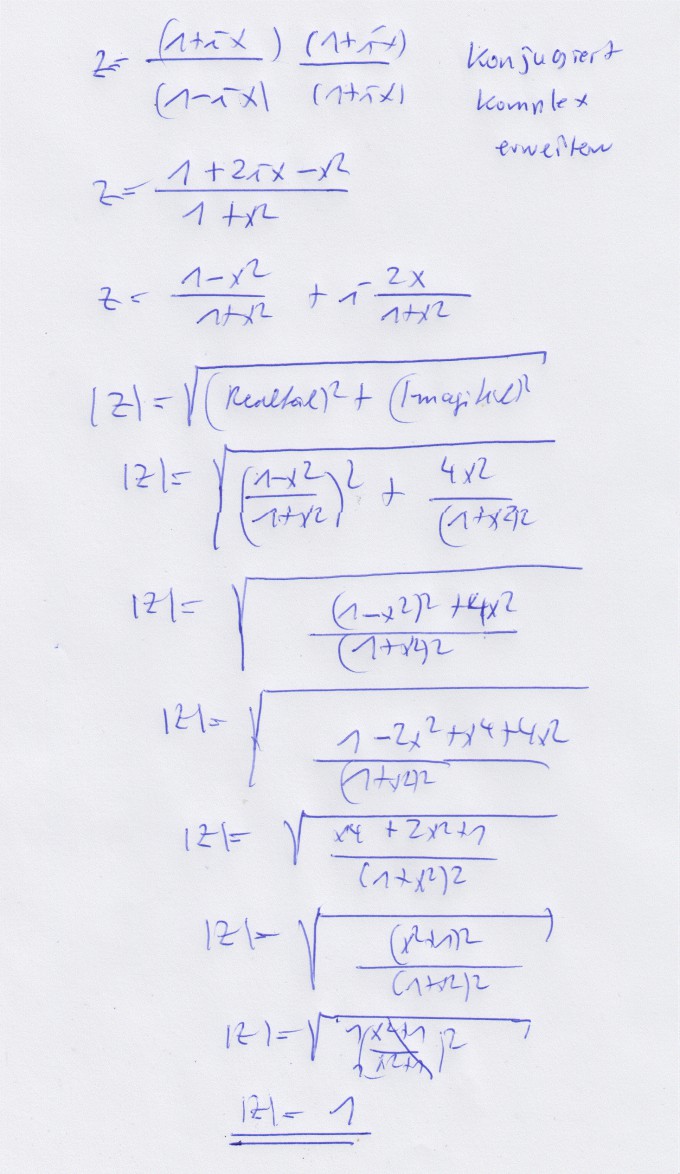 z = (1+ix)/(1-ix) (1+ix)/(1+ix) konjugiert
komplex
erweitern
z = (1+2ix-x²)/(1+x²)
z = (1-x²)/(1+x²) + i 2x/(1+x²)
|z| = √((Realteil)² + (Imagiteil)²)
|z| = √(((1-x²)/(1+x²))² + 4x²/(1+x²)²)
|z| = √(((1-x²)²+4x²)/(1+x²)²)
|z| = √((1-2x²+x⁴+4x²)/(1+x²)²)
|z| = √((x⁴+2x²+1)/(1+x²)²)
|z| = √((x²+1)²/(1+x²)²)
|z| = √(((x²+1)/(x²+1))²)
|z| = 1